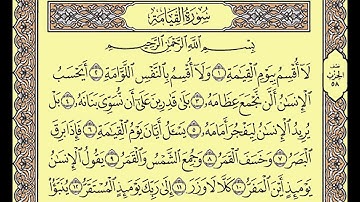 سُورَةُ الْقِيَامَةِ
بِسْمِ اللَّهِ الرَّحْمَٰنِ الرَّحِيمِ
لَا أُقْسِمُ بِيَوْمِ الْقِيَٰمَةِ ١ وَلَا أُقْسِمُ بِالنَّفْسِ اللَّوَّامَةِ ٢ أَيَحْسَبُ
الْإِنسَٰنُ أَلَّن نَّجْمَعَ عِظَامَهُ ٣ بَلَىٰ قَٰدِرِينَ عَلَىٰ أَن نُّسَوِّيَ بَنَانَهُ ٤ بَلْ
يُرِيدُ الْإِنسَٰنُ لِيَفْجُرَ أَمَامَهُ ٥ يَسْـَٔلُ أَيَّانَ يَوْمُ الْقِيَٰمَةِ ٦ فَإِذَا بَرِقَ
الْبَصَرُ ٧ وَخَسَفَ الْقَمَرُ ٨ وَجُمِعَ الشَّمْسُ وَالْقَمَرُ ٩ يَقُولُ الْإِنسَٰنُ
يَوْمَئِذٍ أَيْنَ الْمَفَرُّ ١٠ كَلَّا لَا وَزَرَ ١١ إِلَىٰ رَبِّكَ يَوْمَئِذٍ الْمُسْتَقَرُّ ١٢ يُنَبَّؤُا
نصف
الحزب
٥٨